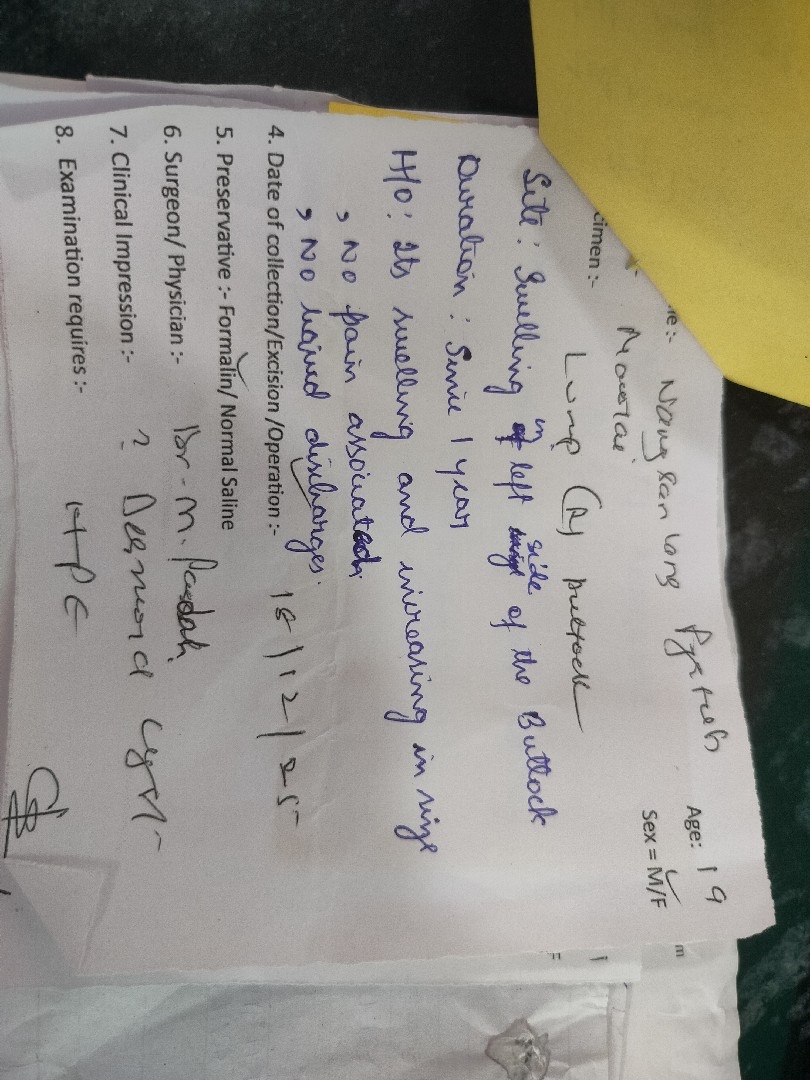 me :- Nangsan lang Pyrtuh Age: 19
Mawlai Sex = M/F
cimen :- Lump buttock
Site : Swelling in left side of the Buttock
Duration : Sinie 1 year
H/O : Its swelling and increasing in size
, No pain associated
, No discharges.
4. Date of collection/Excision /Operation :- 16/12/25
5. Preservative :- Formalin/ Normal Saline
6. Surgeon/ Physician :- Dr - M.
7. Clinical Impression :- ? Dermoid cyst
8. Examination requires :- HPE